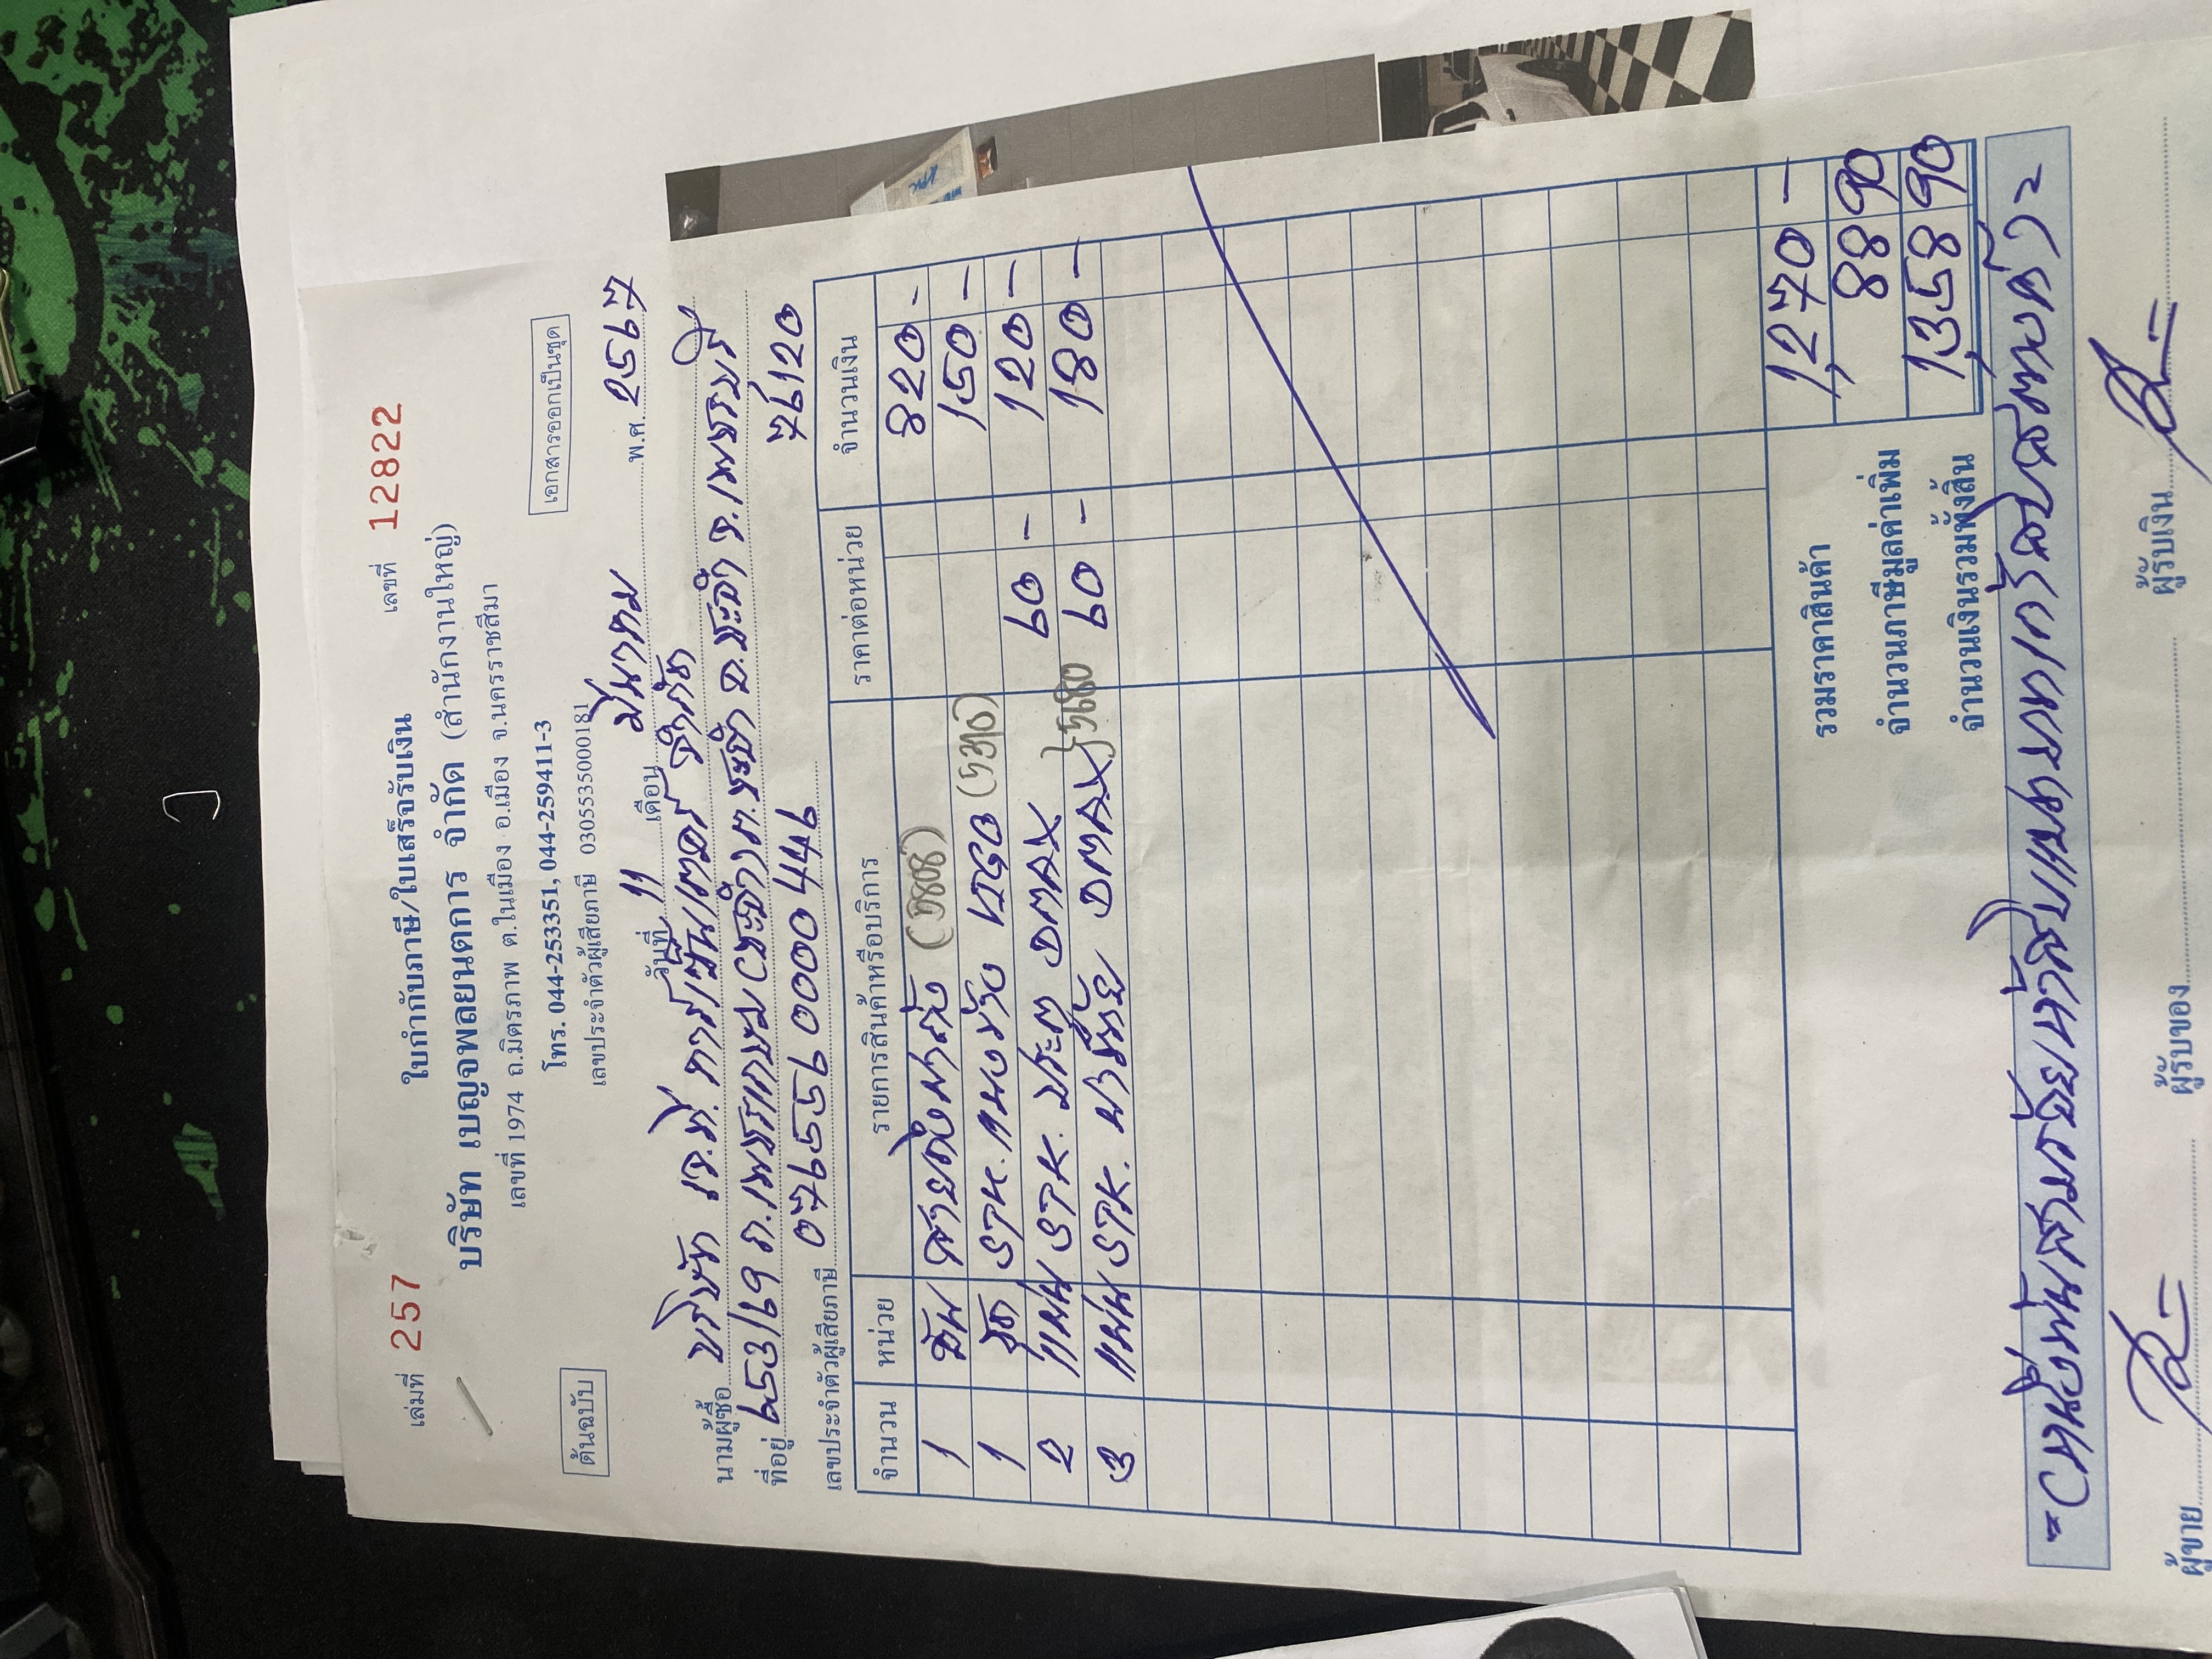 เล่มที่ 257 เลขที่ 12822
ใบกำกับภาษี/ใบเสร็จรับเงิน
บริษัท เบญจพลยนตการ จำกัด (สำนักงานใหญ่)
เลขที่ 1974 ถ.มิตรภาพ ต.ในเมือง อ.เมือง จ.นครราชสีมา
โทร. 044-253351, 044-259411-3
ต้นฉบับ เอกสารออกเป็นชุด
เลขประจำตัวผู้เสียภาษี 0305535000181
วันที่ 11 เดือน มีนาคม พ.ศ. 2567
นามผู้ซื้อ บริษัท เจ.ที. คาร์เซ็นเตอร์ จำกัด
ที่อยู่ 953/19 ถ.เพชรเกษม(ชะอำ) ต.ชะอำ อ.ชะอำ จ.เพชรบุรี
เลขประจำตัวผู้เสียภาษี 0765590000449 76120
จำนวน หน่วย รายการสินค้าหรือบริการ ราคาต่อหน่วย จำนวนเงิน
1 อัน (5808) 820 -
1 ชุด STK. VIGO (5310) 150 -
2 แผ่น STK. ประตู DMAX 60 - 120 -
3 แผ่น STK. DMAX }5680 60 - 180 -
รวมราคาสินค้า 1,270 -
จำนวนภาษีมูลค่าเพิ่ม 88 90
จำนวนเงินรวมทั้งสิ้น 1,358 90
=(หนึ่งพันสามร้อยห้าสิบแปดบาทเก้าสิบสตางค์)=
ผู้ขาย ผู้รับของ ผู้รับเงิน